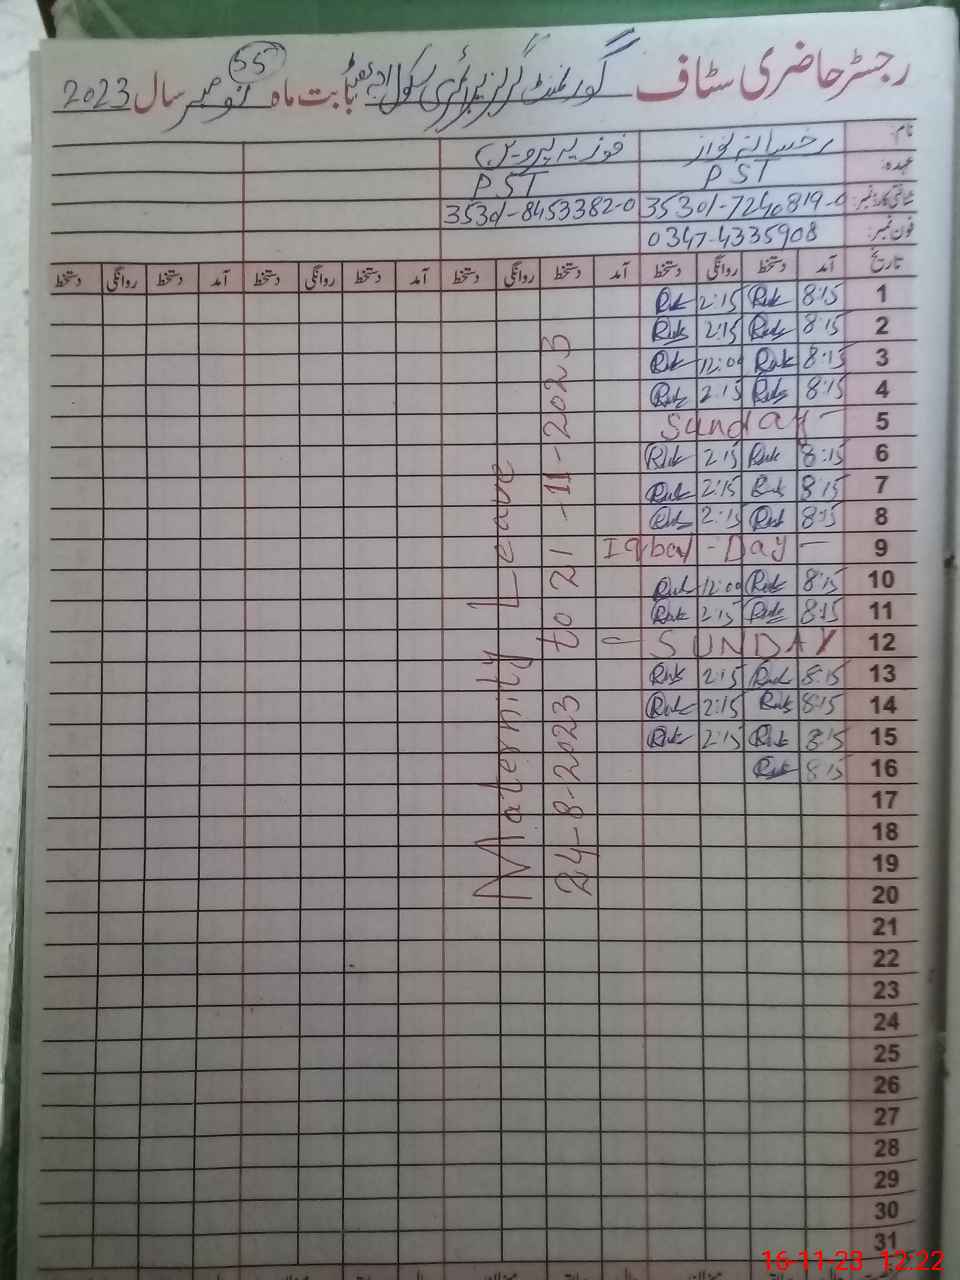 رجسٹر حاضری سٹاف گورنمنٹ گرلز پرائمری سکول بابت ماہ نومبر سال 2023
55
نام: رخسانہ نواز فوزیہ پروین
عہدہ: PST PST
شناختی کارڈ نمبر: 35301-7240819-0 35301-8453382-0
فون نمبر: 0347-4335908
تاریخ آمد دستخط روانگی دستخط آمد دستخط روانگی دستخط آمد دستخط روانگی دستخط آمد دستخط روانگی دستخط
1 8:15 2:15
2 8:15 2:15
3 8:15 12:00
4 8:15 2:15
5 Sunday
6 8:15 2:15
7 8:15 2:15
8 8:15 2:15
9 Iqbal - Day -
10 8:15 12:00
11 8:15 2:15
12 - SUNDAY
13 8:15 2:15
14 8:15 2:15
15 8:15 2:15
16 8:15
17
18
19
20
21
22
23
24
25
26
27
28
29
30
31
Maternity Leave
24-8-2023 to 21-11-2023
16-11-23 12:22